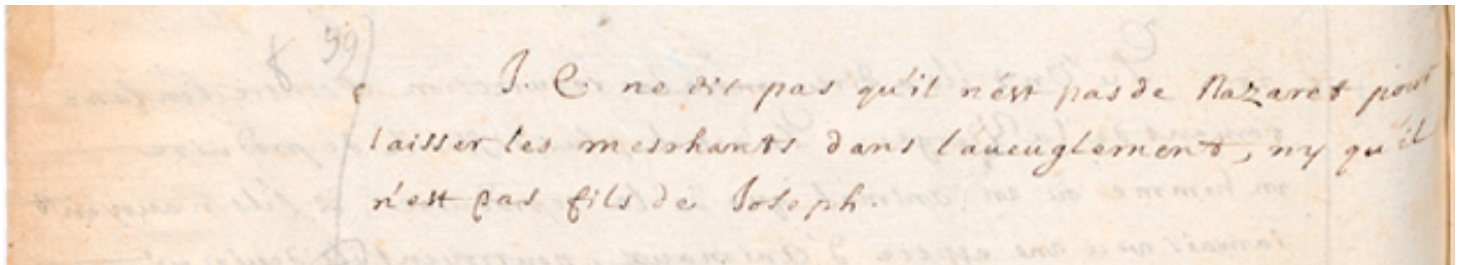 59
J. C ne dit pas qu'il n'est pas de Nazaret pour
laisser les meschants dans l'aueuglement, ny qu'il
n'est pas fils de Joseph.